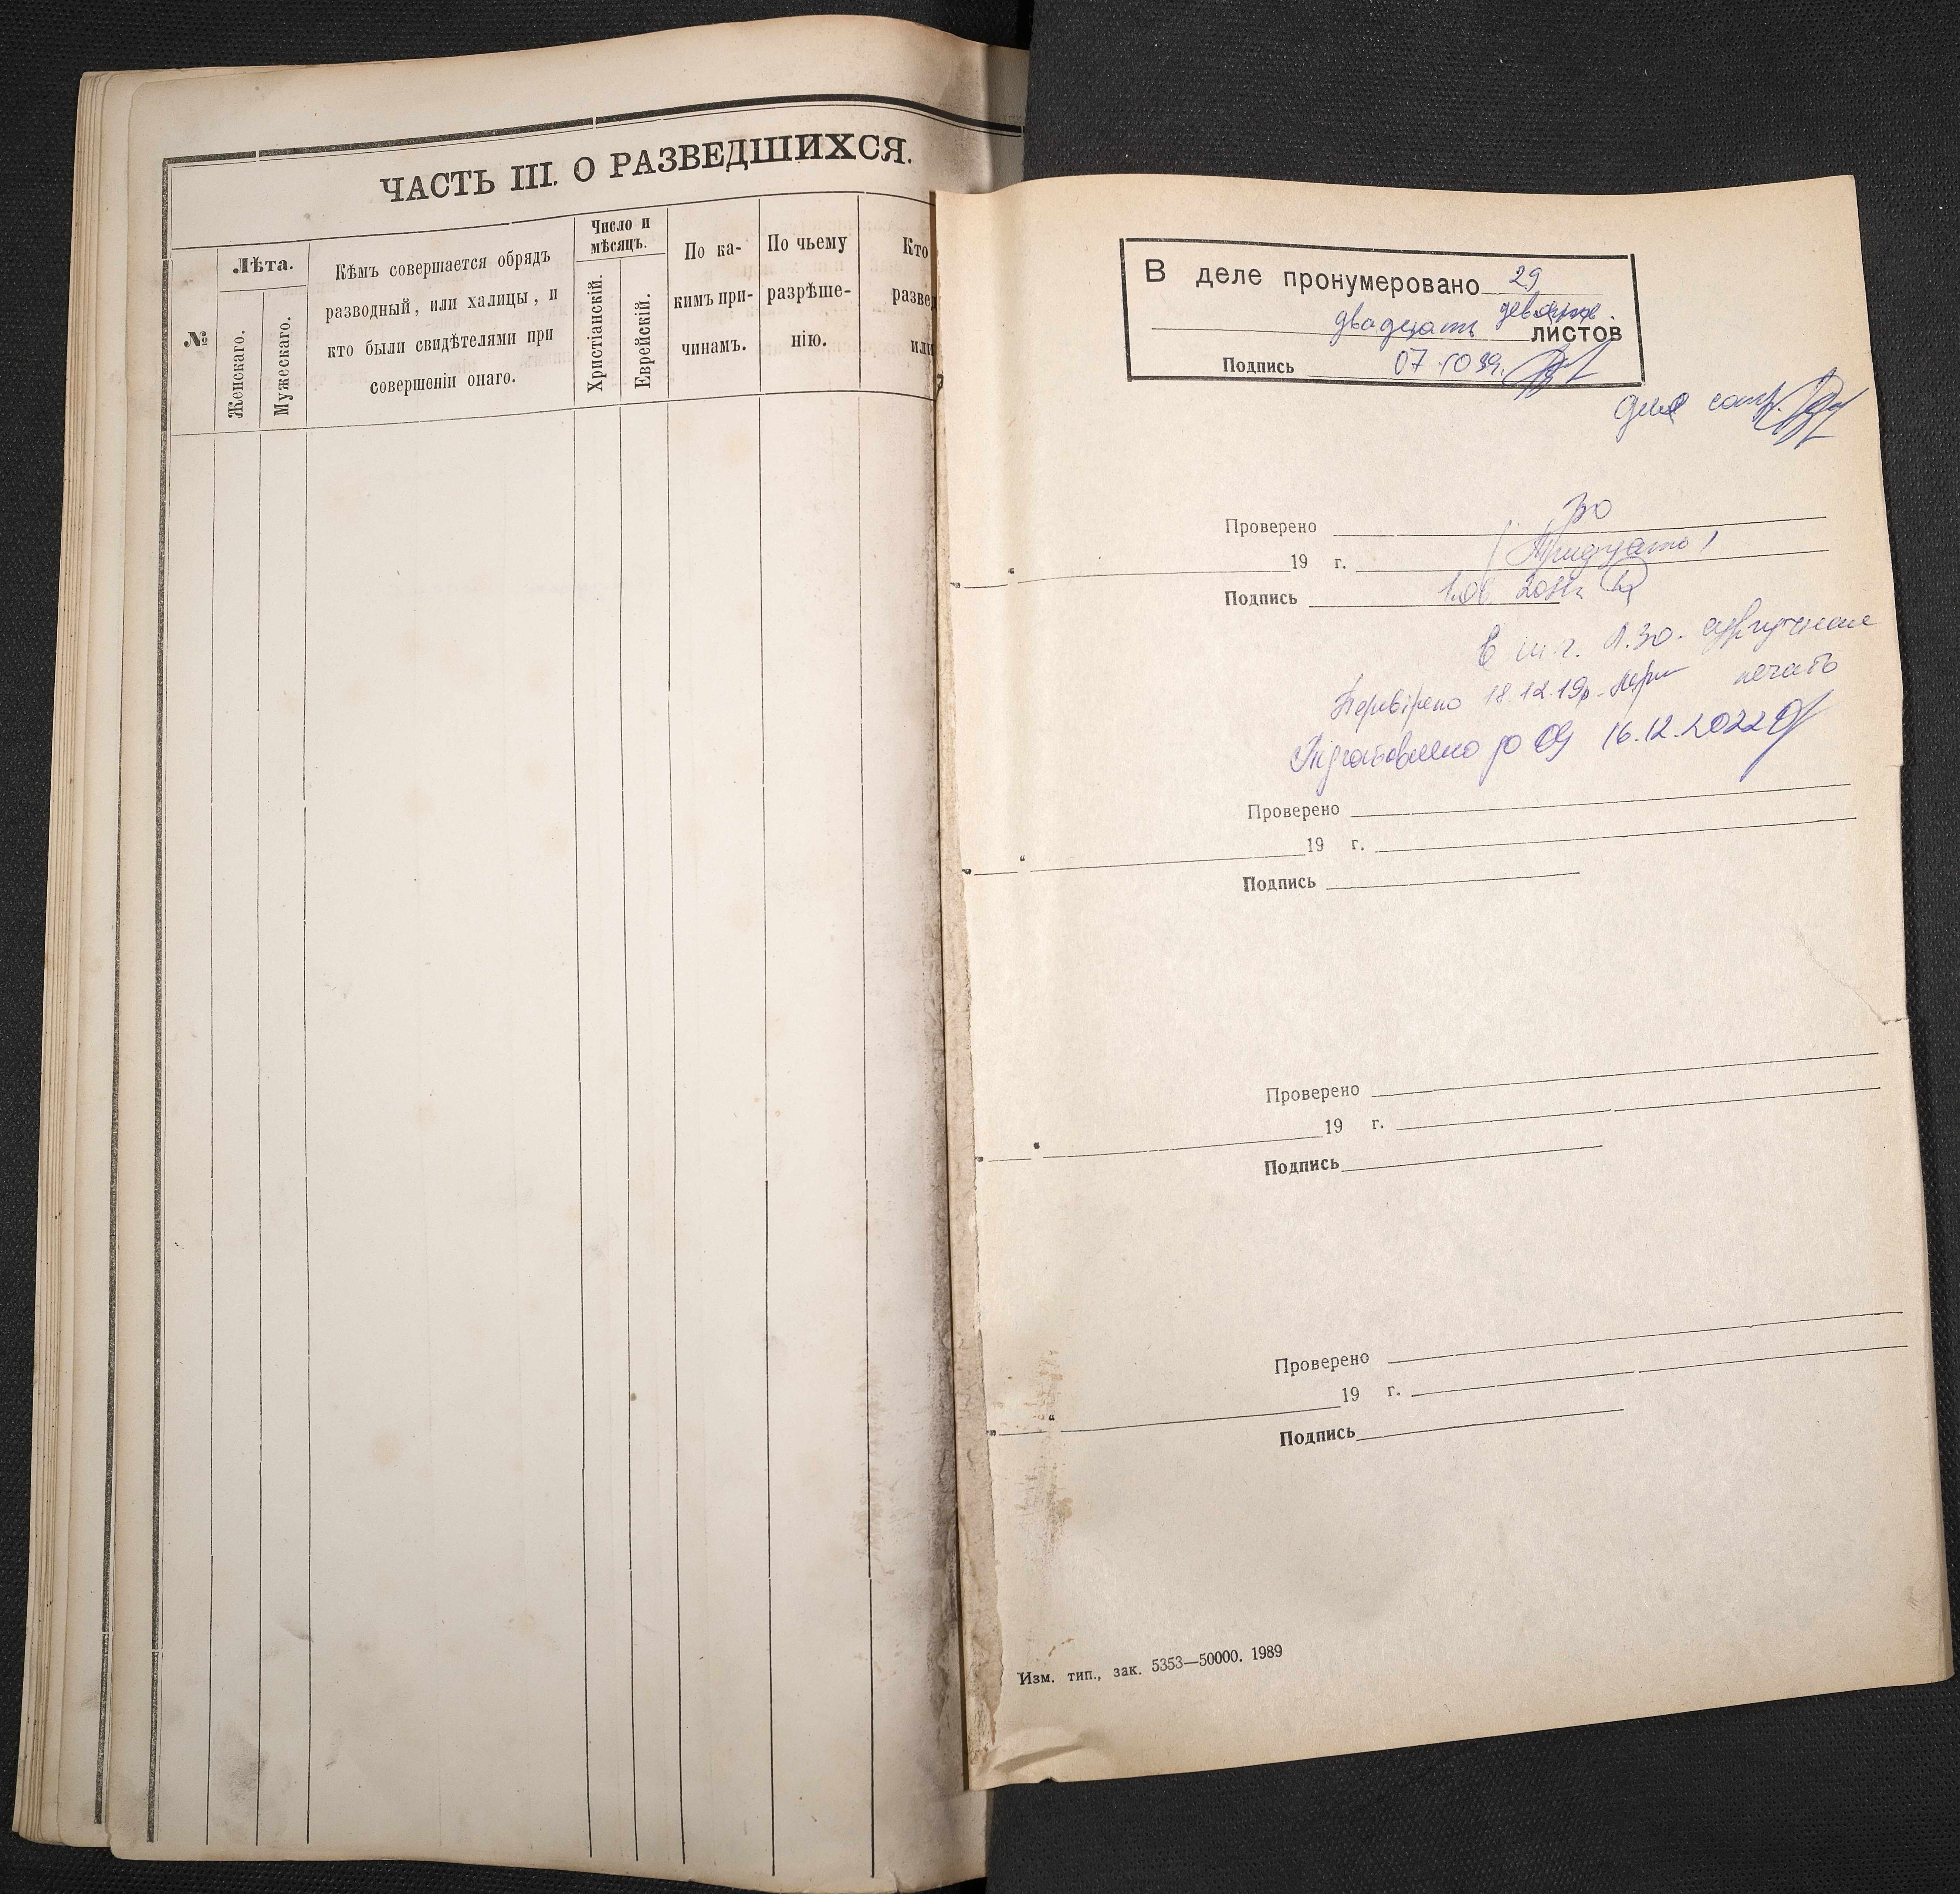 ЧАСТЬ III. О РАЗВЕДШИХСЯ.
№
Лѣта.
Женскаго.
Мужескаго.
Кѣмъ совершается обрядъ
разводный, или халицы, и
кто были свидѣтелями при
совершеніи онаго.
Число и
мѣсяцъ.
Христіанскій.
Еврейскій.
По ка-
кимъ при-
чинамъ.
По чьему
разрѣше-
нію.
Кто
разве
или
В деле пронумеровано 29
двадцать девять
листов
Подпись 07.10 99.
Проверено 30
19 г. (Тридцать)
Подпись
В т.ч. л.30.
Перевірено 18.12.19р. печать
Підготовлено до 16.12.2022
Проверено
19 г.
Подпись
Проверено
19 г.
Подпись
Проверено
19 г.
Подпись
Изм. тип., зак. 5353—50000. 1989